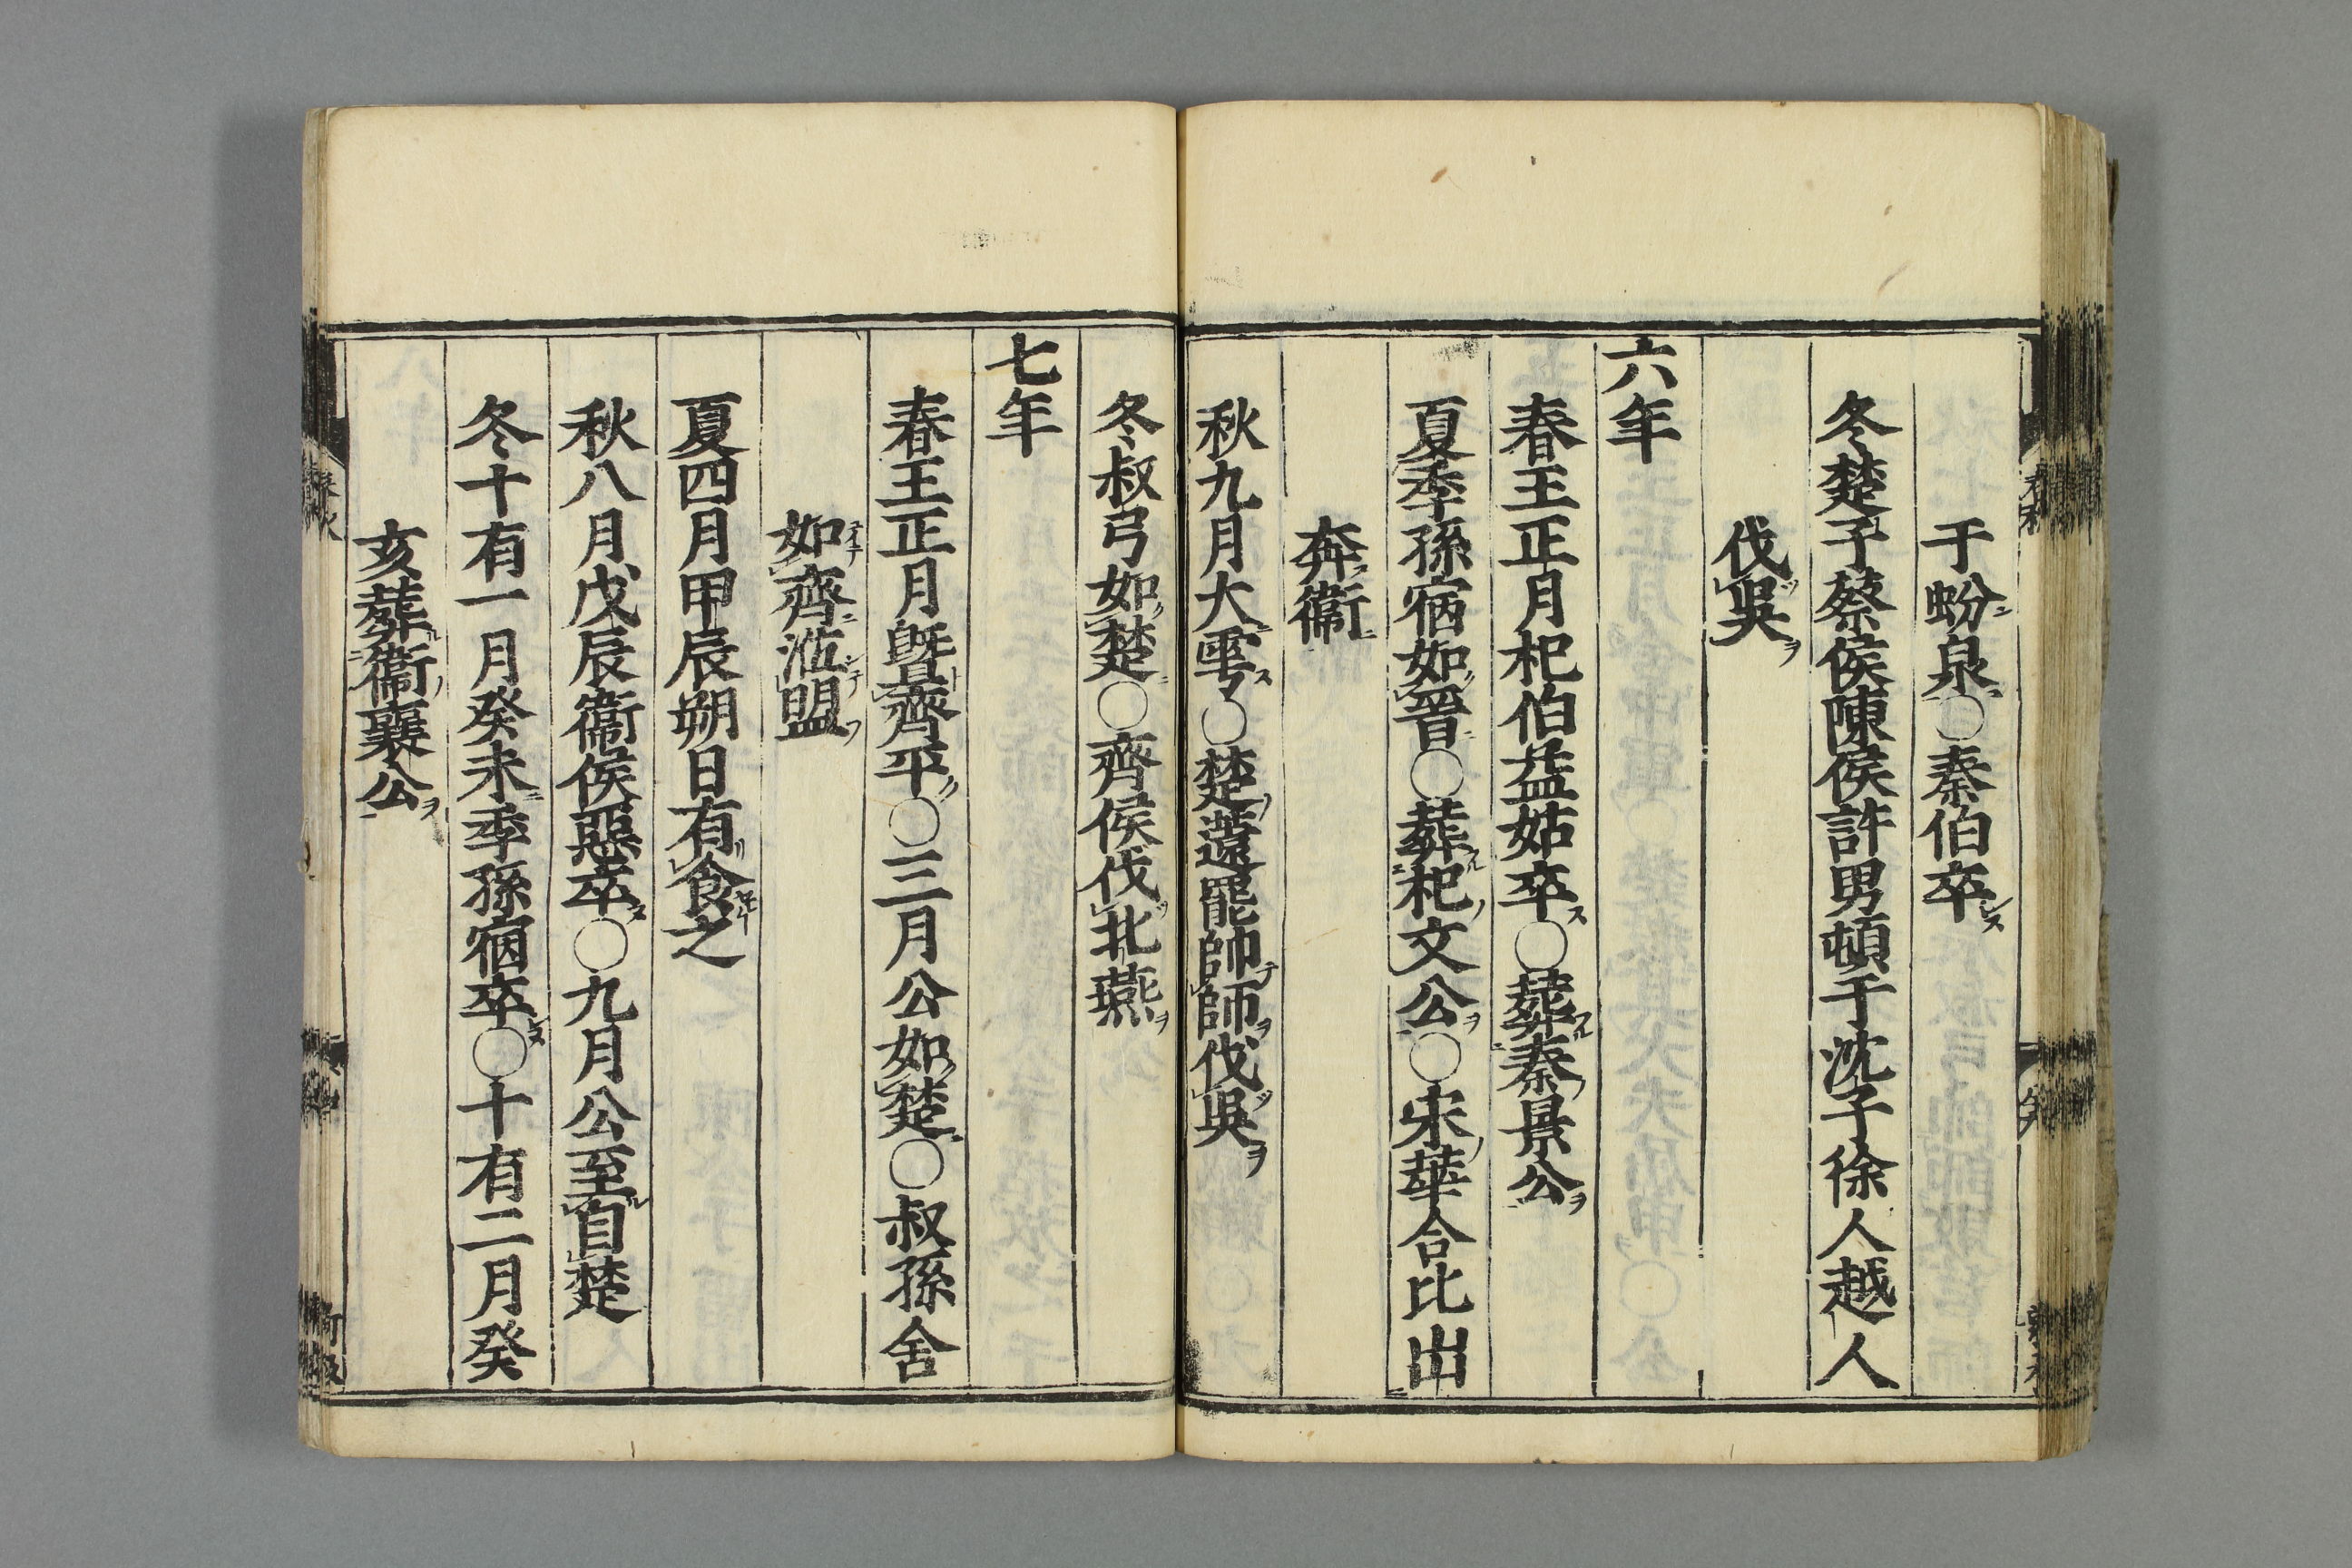 于蚡泉○秦伯卒
冬楚子蔡侯陳侯許男頓子沈子徐人越人
伐吳
六年
春王正月杞伯益姑卒○葬秦景公
夏季孫宿如晉○葬杞文公○宋華合比出
奔衞
秋九月大雩○楚薳罷帥師伐吳
冬叔弓如楚○齊侯伐北燕
七年
春王正月曁齊平○三月公如楚○叔孫舍
如齊涖盟
夏四月甲辰朔日有食之
秋八月戊辰衞侯惡卒○九月公至自楚
冬十有一月癸未季孫宿卒○十有二月癸
亥葬衞襄公